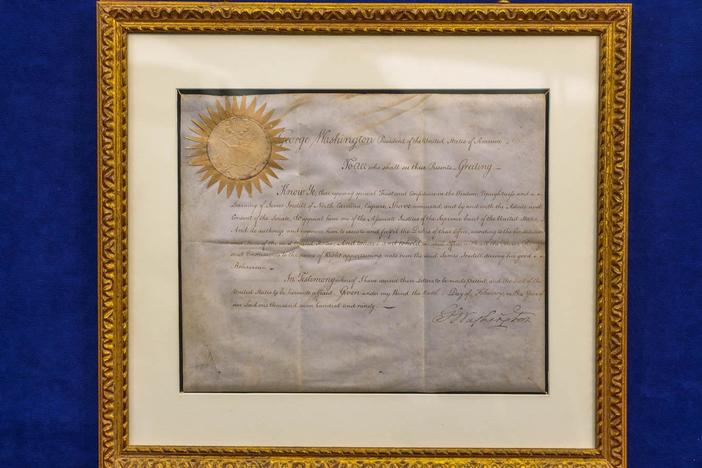 George Washington President of the United States of America
To all who shall see these Presents Greeting
Know Ye, that reposing special Trust and Confidence in the Wisdom, Uprightness and
Learning of James Iredell of North Carolina Esquire, I have nominated, and by and with the Advice and
Consent of the Senate, do appoint him one of the Associate Justices of the Supreme Court of the United States
And do authorize and empower him to execute and fulfil the Duties of that Office, according to the Constitution
and Laws of the said United States; And to have and to hold the said Office, with all the
and Emoluments to the same of Right appertaining unto him the said James Iredell during his good
Behaviour.
In Testimony whereof I have caused these Letters to be made Patent, and the Seal of the
United States to be hereunto affixed. Given under my Hand the Tenth Day of February in the Year of
our Lord one thousand seven hundred and ninety
G Washington